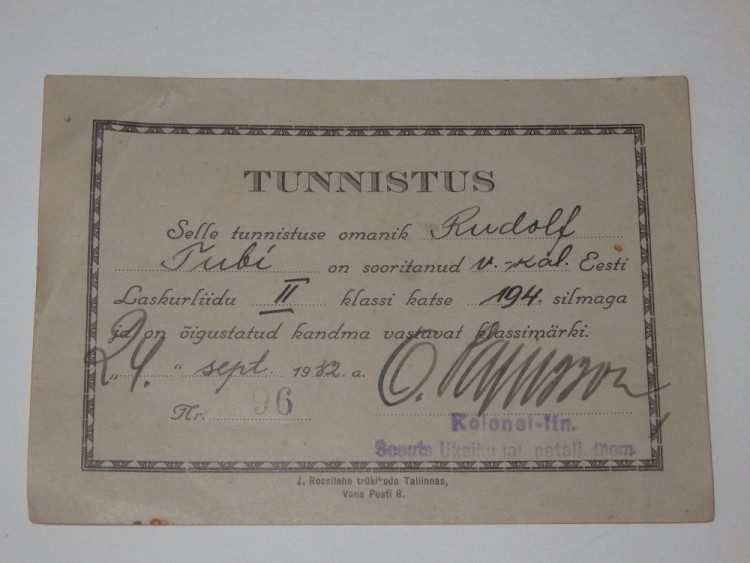 TUNNISTUS
Selle tunnistuse omanik Rudolf
Tubi on sooritanud v.-kal. Eesti
Laskurliidu II klassi katse 194. silmaga
ja on õigustatud kandma vastavat klassimärki.
„24.“ sept. 1932. a.
Nr. 96
Kolonel-ltn.
Scouts Üksiku jal. patalj. ülem.
J. Roosilehe trükikoda Tallinnas,
Vana Posti 8.